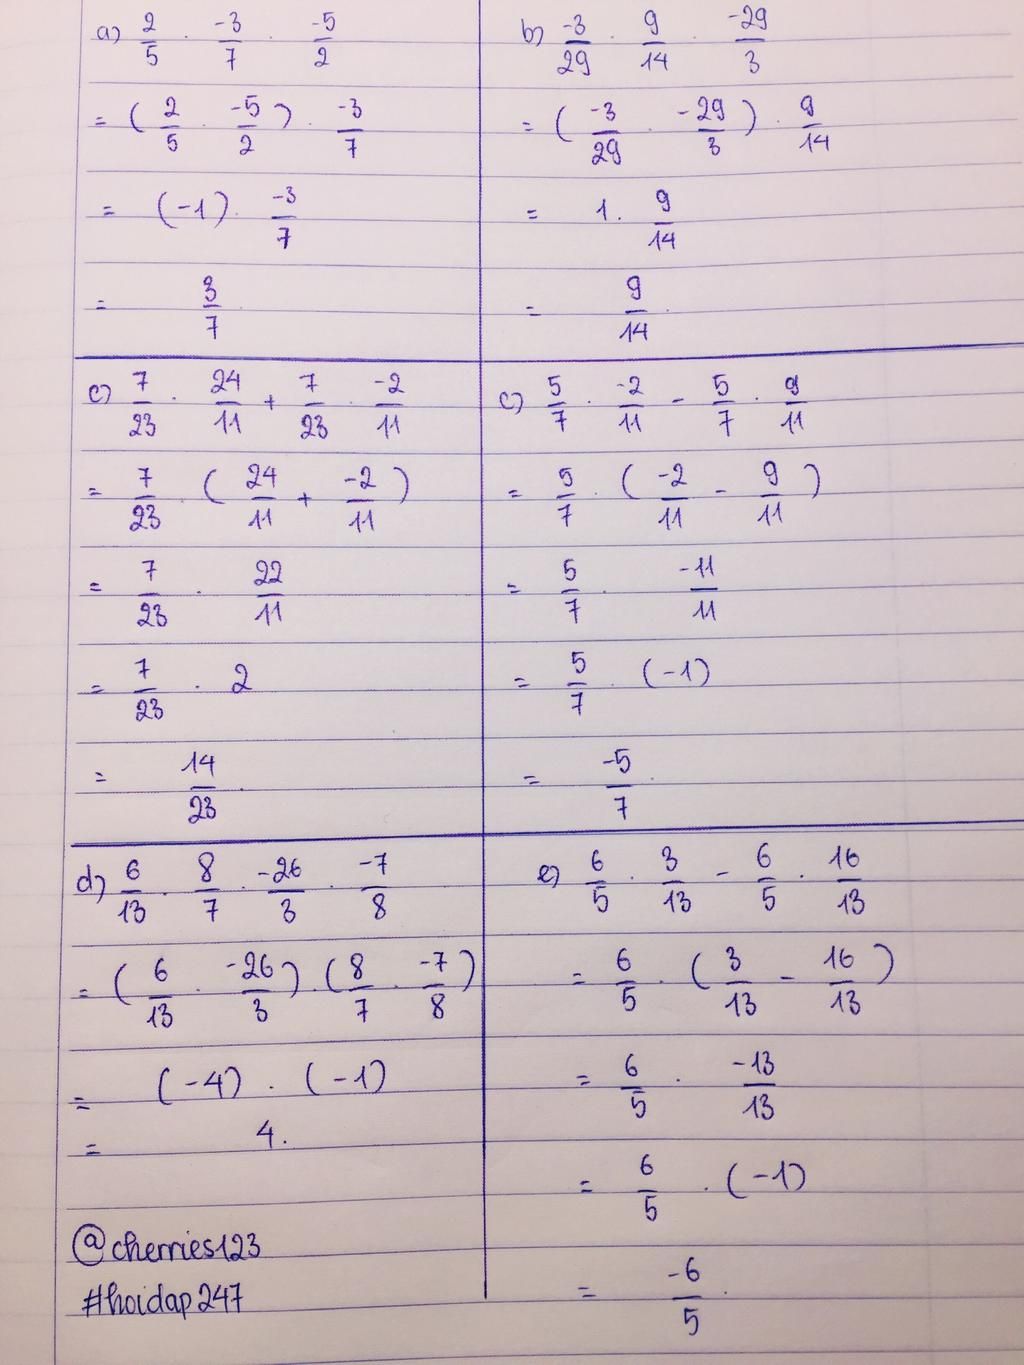 a) 2/5 . -3/7 . -5/2
= (2/5 . -5/2) . -3/7
= (-1) . -3/7
= 3/7
b) -3/29 . 9/14 . -29/3
= (-3/29 . -29/3) . 9/14
= 1 . 9/14
= 9/14.
c) 7/23 . 24/11 + 7/23 . -2/11
= 7/23 . (24/11 + -2/11)
= 7/23 . 22/11
= 7/23 . 2
= 14/23.
c) 5/7 . -2/11 - 5/7 . 9/11
= 5/7 . (-2/11 - 9/11)
= 5/7 . -11/11
= 5/7 . (-1)
= -5/7.
d) 6/13 . 8/7 . -26/3 . -7/8
= (6/13 . -26/3) . (8/7 . -7/8)
= (-4) . (-1)
= 4.
@cherries123
#hoidap247
e) 6/5 . 3/13 - 6/5 . 16/13
= 6/5 . (3/13 - 16/13)
= 6/5 . -13/13
= 6/5 . (-1)
= -6/5.